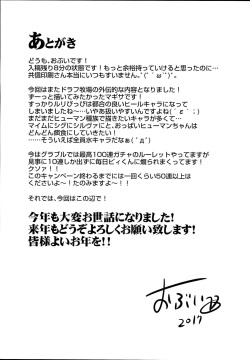 あとがき
どうも、おぶいです！
入稿残り8分の状態です！もっと余裕持っていけると思ったのに…
共信印刷さん本当にいつもすいません。
今回はまたドラフ牧場の外伝的な内容となりました！
ずーっと描いてみたかったマギサです！
すっかりルリッぱは都合の良いヒールキャラになって
しまいましたね～いやあ扱いやすいんですよこれが
まだまだヒューマン種族で描きたいキャラが多くって…
マイムにシグにシルヴァにと、おっぱいヒューマンちゃんは
どんどん餌食にしていきたい！
……そういえば全員水キャラだなぁ
今はグラブルでは最高100連ガチャのルーレットやってますが
見事に10連しか出ずに毎日ビィくんに煽られまくってます！
クソァ！！
このキャンペーン終わるまでには一回くらい50連以上は
くださいよ～！たのみますよ～！！
それでは、今回はこの辺で！
今年も大変お世話になりました！
来年もどうぞよろしくお願い致します！
皆様よいお年を！！
おぶい
2017